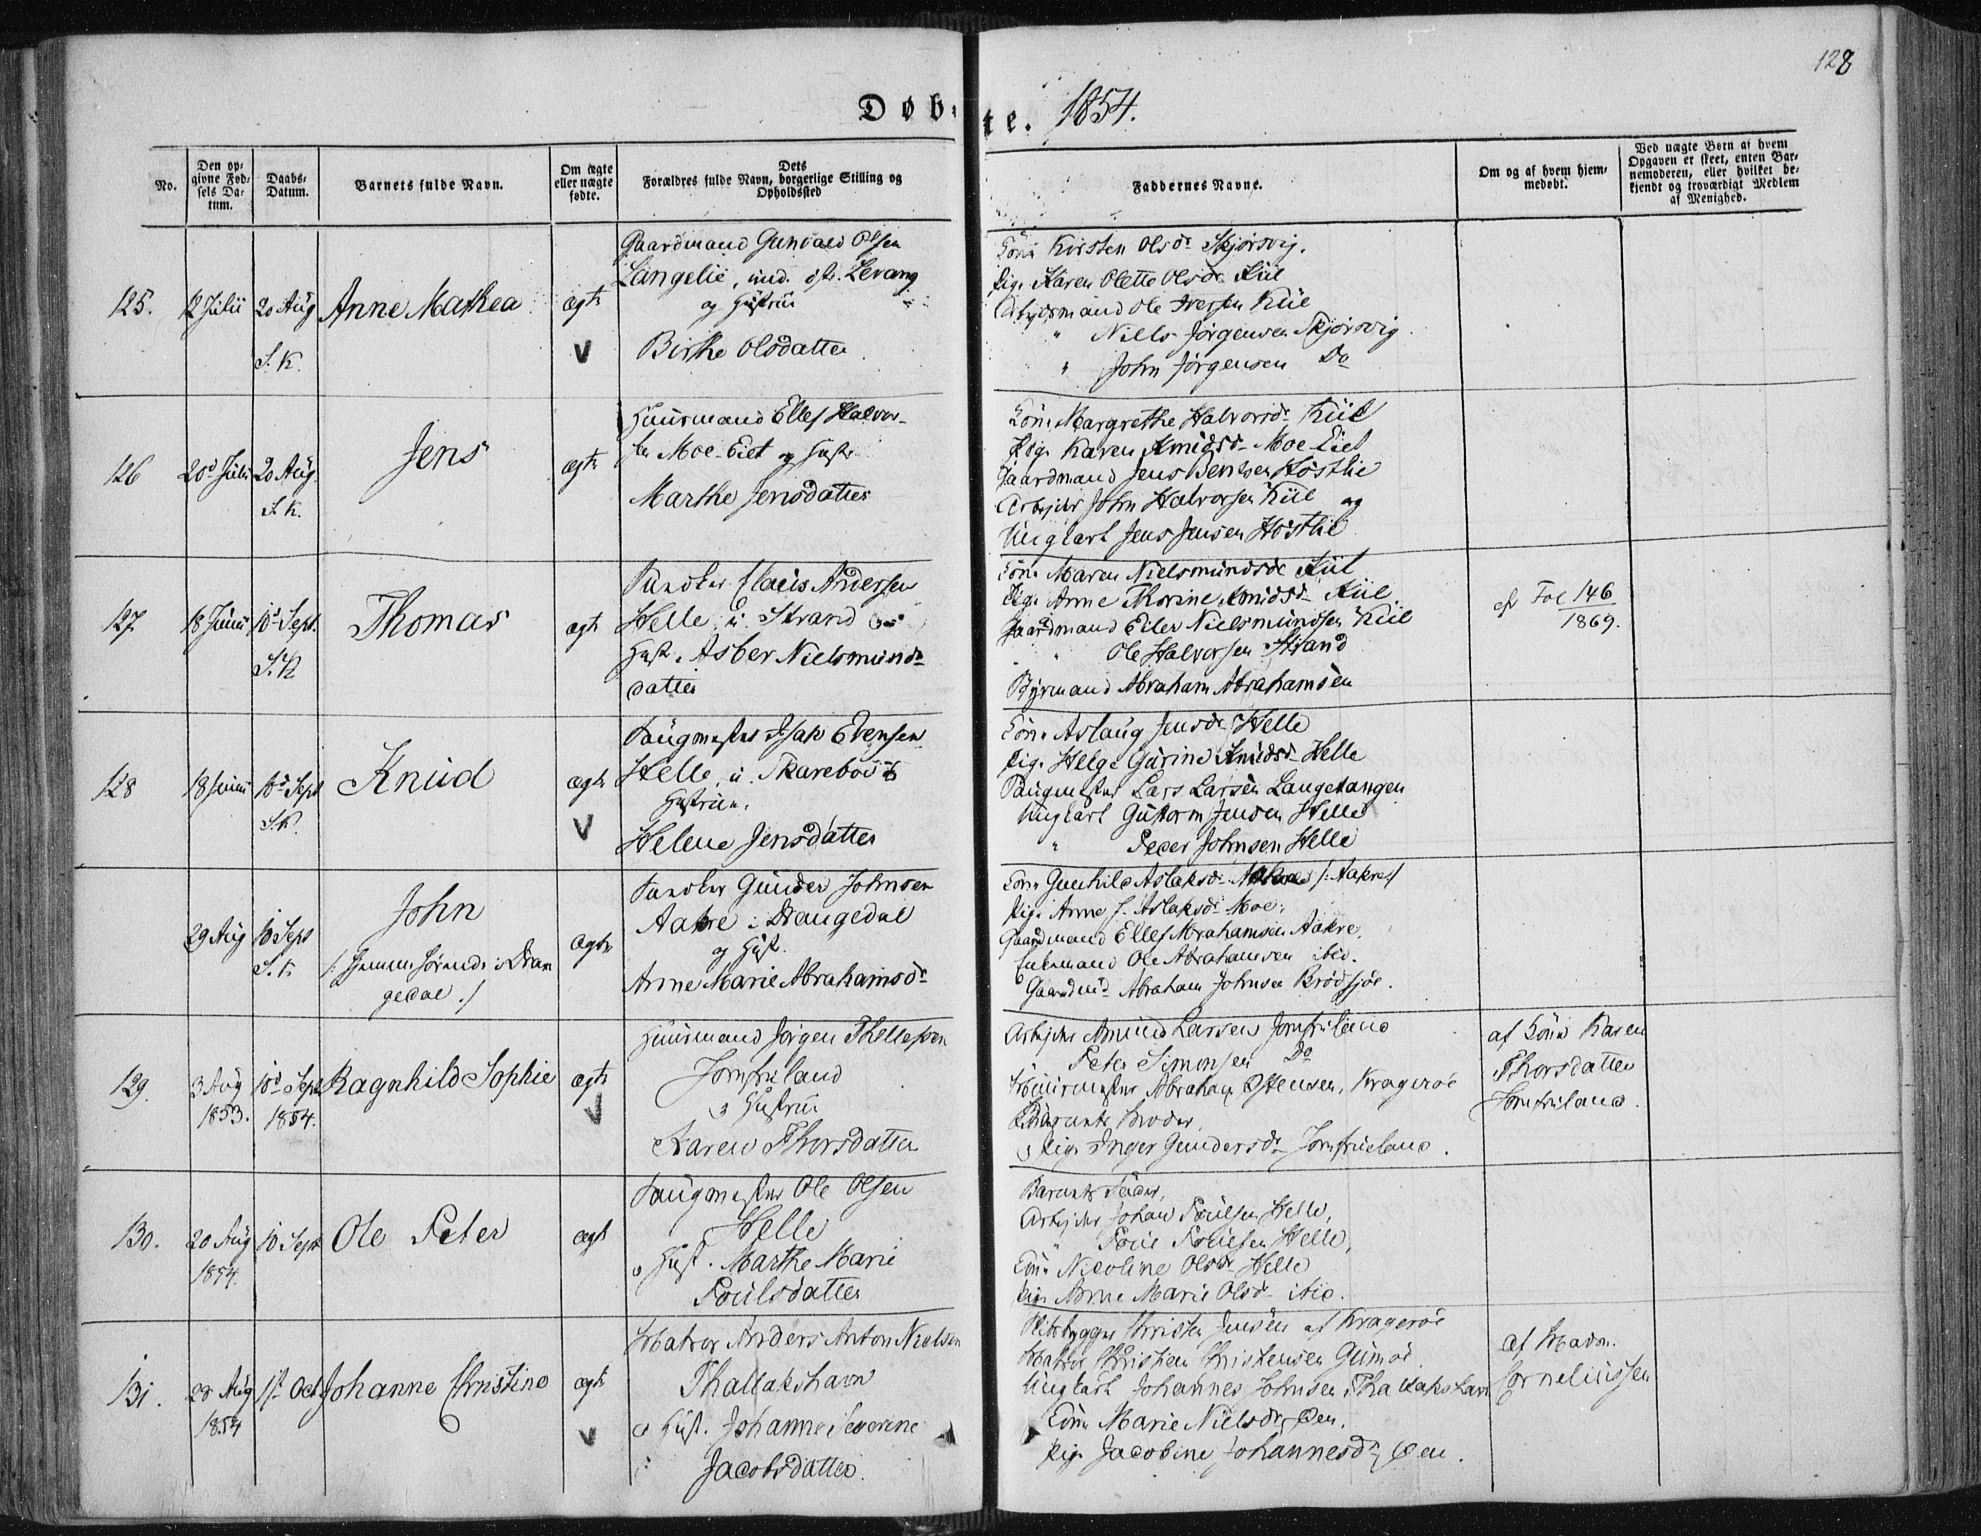 128
Døbte. 1854.
No.
Den opgivne Fødsels Datum.
Daabs-Datum.
Barnets fulde Navn.
Om ægte eller uægte fødte.
Dets Forældres fulde Navn, borgerlige Stilling og Opholdssted
Faddernes Navne.
Om og af hvem hjemmedøbt.
Ved uægte Børn af hvem Opgaven er skeet, enten Barnemoderen, eller hvilket bekjendt og troværdigt Medlem af Menighed.
125. 12 Julii 20 Aug S.K.
Anne Mathea
ægte V
Gaardmand Gunvald Olsen
Langelie, Levang
og Hustrue
Birthe Olsdatter
Kone Kirsten Olsdr Skjørsvig.
Pige Karen Olette Olsdr Kiil
Arbejdsmand Ole Iversen Kiil
" Niels Jørgensen Skjørsvig
" John Jørgensen Do
126 20d Julii 20 Aug. S.K.
Jens
ægte
Huusmand Ellef Halvor-
sen Moe-Eiet og Hustr
Marthe Jensdatter
Kone Margrethe Halvorsdr Kiil
Pige Karen Amundsdr Moe-Eiet
Gaardmand Jens Bentsen Høstlie
Arbejder John Halvorsen Kiil og
Ungkarl Jens Jensen Høstlie
127 18 Junii 10d Sept. S.K
Thomas
ægte
Claus Andersen
Helle, u. Strand og
Hust. Asber Nielsmunds-
datter
Kone Maren Nielsmundsdr Kiil
Pige Anne Thorine Amundsdr Kiil
Gaardmand Eiler Nielsmundsen Kiil
" Ole Halvorsen Strand
Abraham Abrahamsen
cfr Fol 146
1869.
128 18 Junii 10d Sept S.K.
Knud
ægte V
Saugmester Isak Evensen
Helle, u. Skarebo
Hustrue.
Helene Jensdatter
Kone Aslaug Jensdr Helle
Pige Helge Gurine Knudsdr Helle
Saugmester Lars Larsen Langetangen
Ungkarl Guttorm Jensen Helle
" Peder Johnsen Helle
29 Aug 10 Sept S.K
John
/: Hjemmehørende i Dran
gedal :/
ægte
Gunder Johnsen
Aakre i Drangedal
og Hust.
Anne Marie Abrahamsdr
Kone Gunhild Aslaksdr /: Aakre /
Pige Anne J. Aslaksdr Moe.
Gaardmand Ellef Abrahamsen Aakre.
Enkemand Ole Abrahamsen ibid.
Gaardmd Abraham Johnsen Brødsjøe.
129. 3 Aug 1853. 10d Sept 1854.
Ragnhild Sophie
ægte V
Huusmand Jørgen Thellefsen
Jomfruland
og Hustrue
Karen Thorsdatter
Arbejder Amund Larsen Jomfruland
" Peter Simonsen Do
Abraham Ostensen, Kragerøe
Barnets Moder,
og Pige Inger Gundersdr Jomfrueland.
af Kone Karen
Thorsdatter
Jomfruland.
130. 20 Aug 1854. 10 Sept
Ole Peter
ægte
Saugmester Ole Olsen
Helle
og Hust. Marthe Marie
Poulsdatter
Barnets Fader,
Arbejder Johan Poulsen Helle,
" Poul Poulsen Helle,
Kone Nicoline Olsdr Helle
Pige Anne Marie Olsdr ibid.
131. 28 Aug 1854 1st Oct
Johanne Christine
ægte V
Matros Anders Anton Nielsen
Thallakshavn
og Hust. Johanne Severine
Jacobsdatter.
Christen Jensen af Kragerøe
Matros Christian Christensen Gumøe
Ungkarl Johannes Johnsen Thallakshavn
Kone Marie Nielsdr Øen.
Pige Jacobine Johannesdr Øen.
af Madm.
Corneliussen